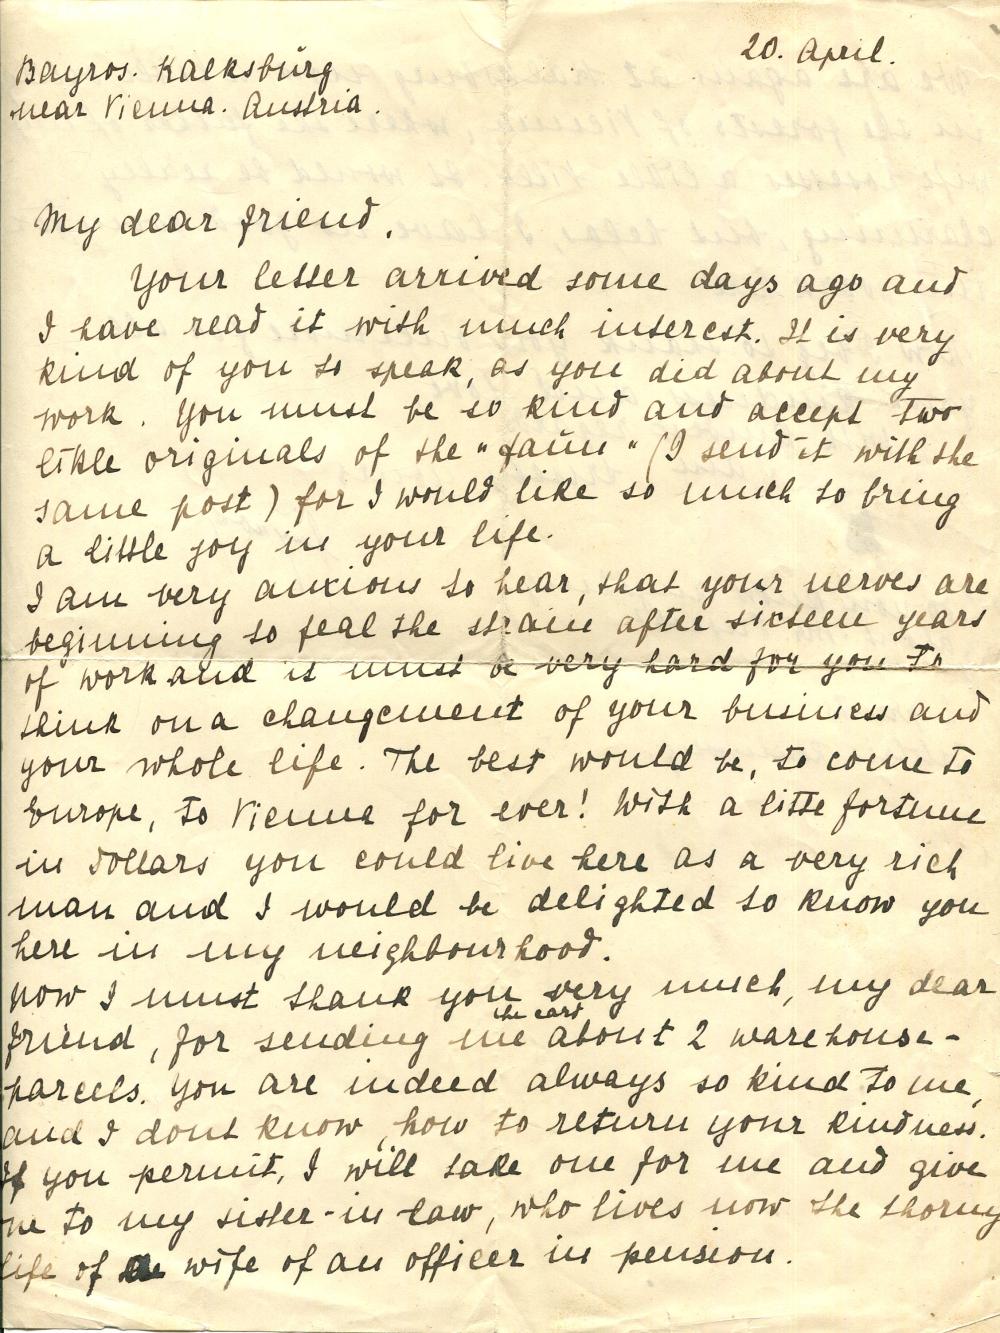 20. April.
Bayros. Kalksburg
near Vienna. Austria.
My dear friend,
Your letter arrived some days ago and
I have read it with much interest. It is very
kind of you to speak, as you did about my
work. You must be so kind and accept two
little originals of the "faun" (I send it with the
same post) for I would like so much to bring
a little joy in your life.
I am very anxious to hear, that your nerves are
beginning to feal the strain after sixteen years
of work and it must be very hard for you to
think on a changement of your business and
your whole life. The best would be, to come to
Europe, to Vienna for ever! With a little fortune
in Dollars you could live here as a very rich
man and I would be delighted to know you
here in my neighbourhood.
Now I must thank you very much, my dear
the cart
friend, for sending me about 2 warehouse-
parcels. You are indeed always so kind to me,
and I dont know, how to return your kindness.
If you permit, I will take one for me and give
one to my sister-in-law, who lives now the thorny
life of wife of an officer in pension.